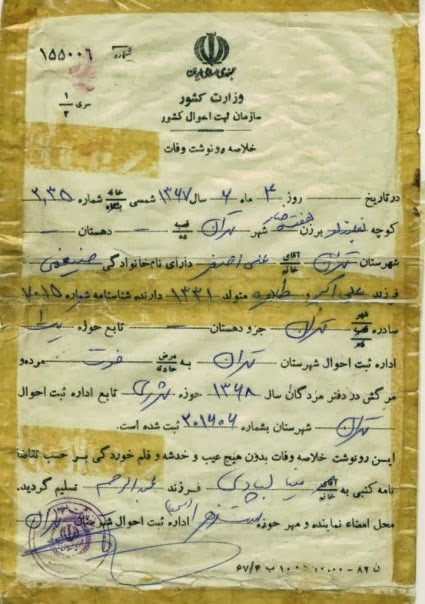 شماره ۱۵۵۰۰۶
جمهوری اسلامی ایران
سری ۱/۲
وزارت کشور
سازمان ثبت احوال کشور
خلاصه رونوشت وفات
در تاریخ روز ۴ ماه ۶ سال ۱۳۶۷ شمسی خانه بنگاه شماره
کوچه برزن شهر تهران قصبه ده - دهستان -
شهرستان تهران آقای خانم علی اصغر دارای نام خانوادگی ضیغمی
فرزند علی اکبر و طاهره متولد ۱۳۳۱ دارنده شناسنامه شماره ۷۰۱۵
صادره شهر قصبه ده تهران جزو دهستان - تابع حوزه
اداره ثبت احوال شهرستان تهران به مرض حادثه فوت مرده و
مرگش در دفتر مردگان سال ۱۳۶۸ حوزه تابع اداره ثبت احوال
تهران شهرستان بشماره ۲۰۱۶۰۶ ثبت شده است.
ایسن رونوشت خلاصه وفات بدون هیچ عیب و خدشه و قلم خوردگی بسر حسب تقاضا
نامه کتبی به آقای خانم فرزند تسلیم گردید.
محل امضاء نماینده و مهر حوزه اداره ثبت احوال شهرستان تهران
ن ۸۲-۱۰۰۰۰۰ ب ۶۷/۴